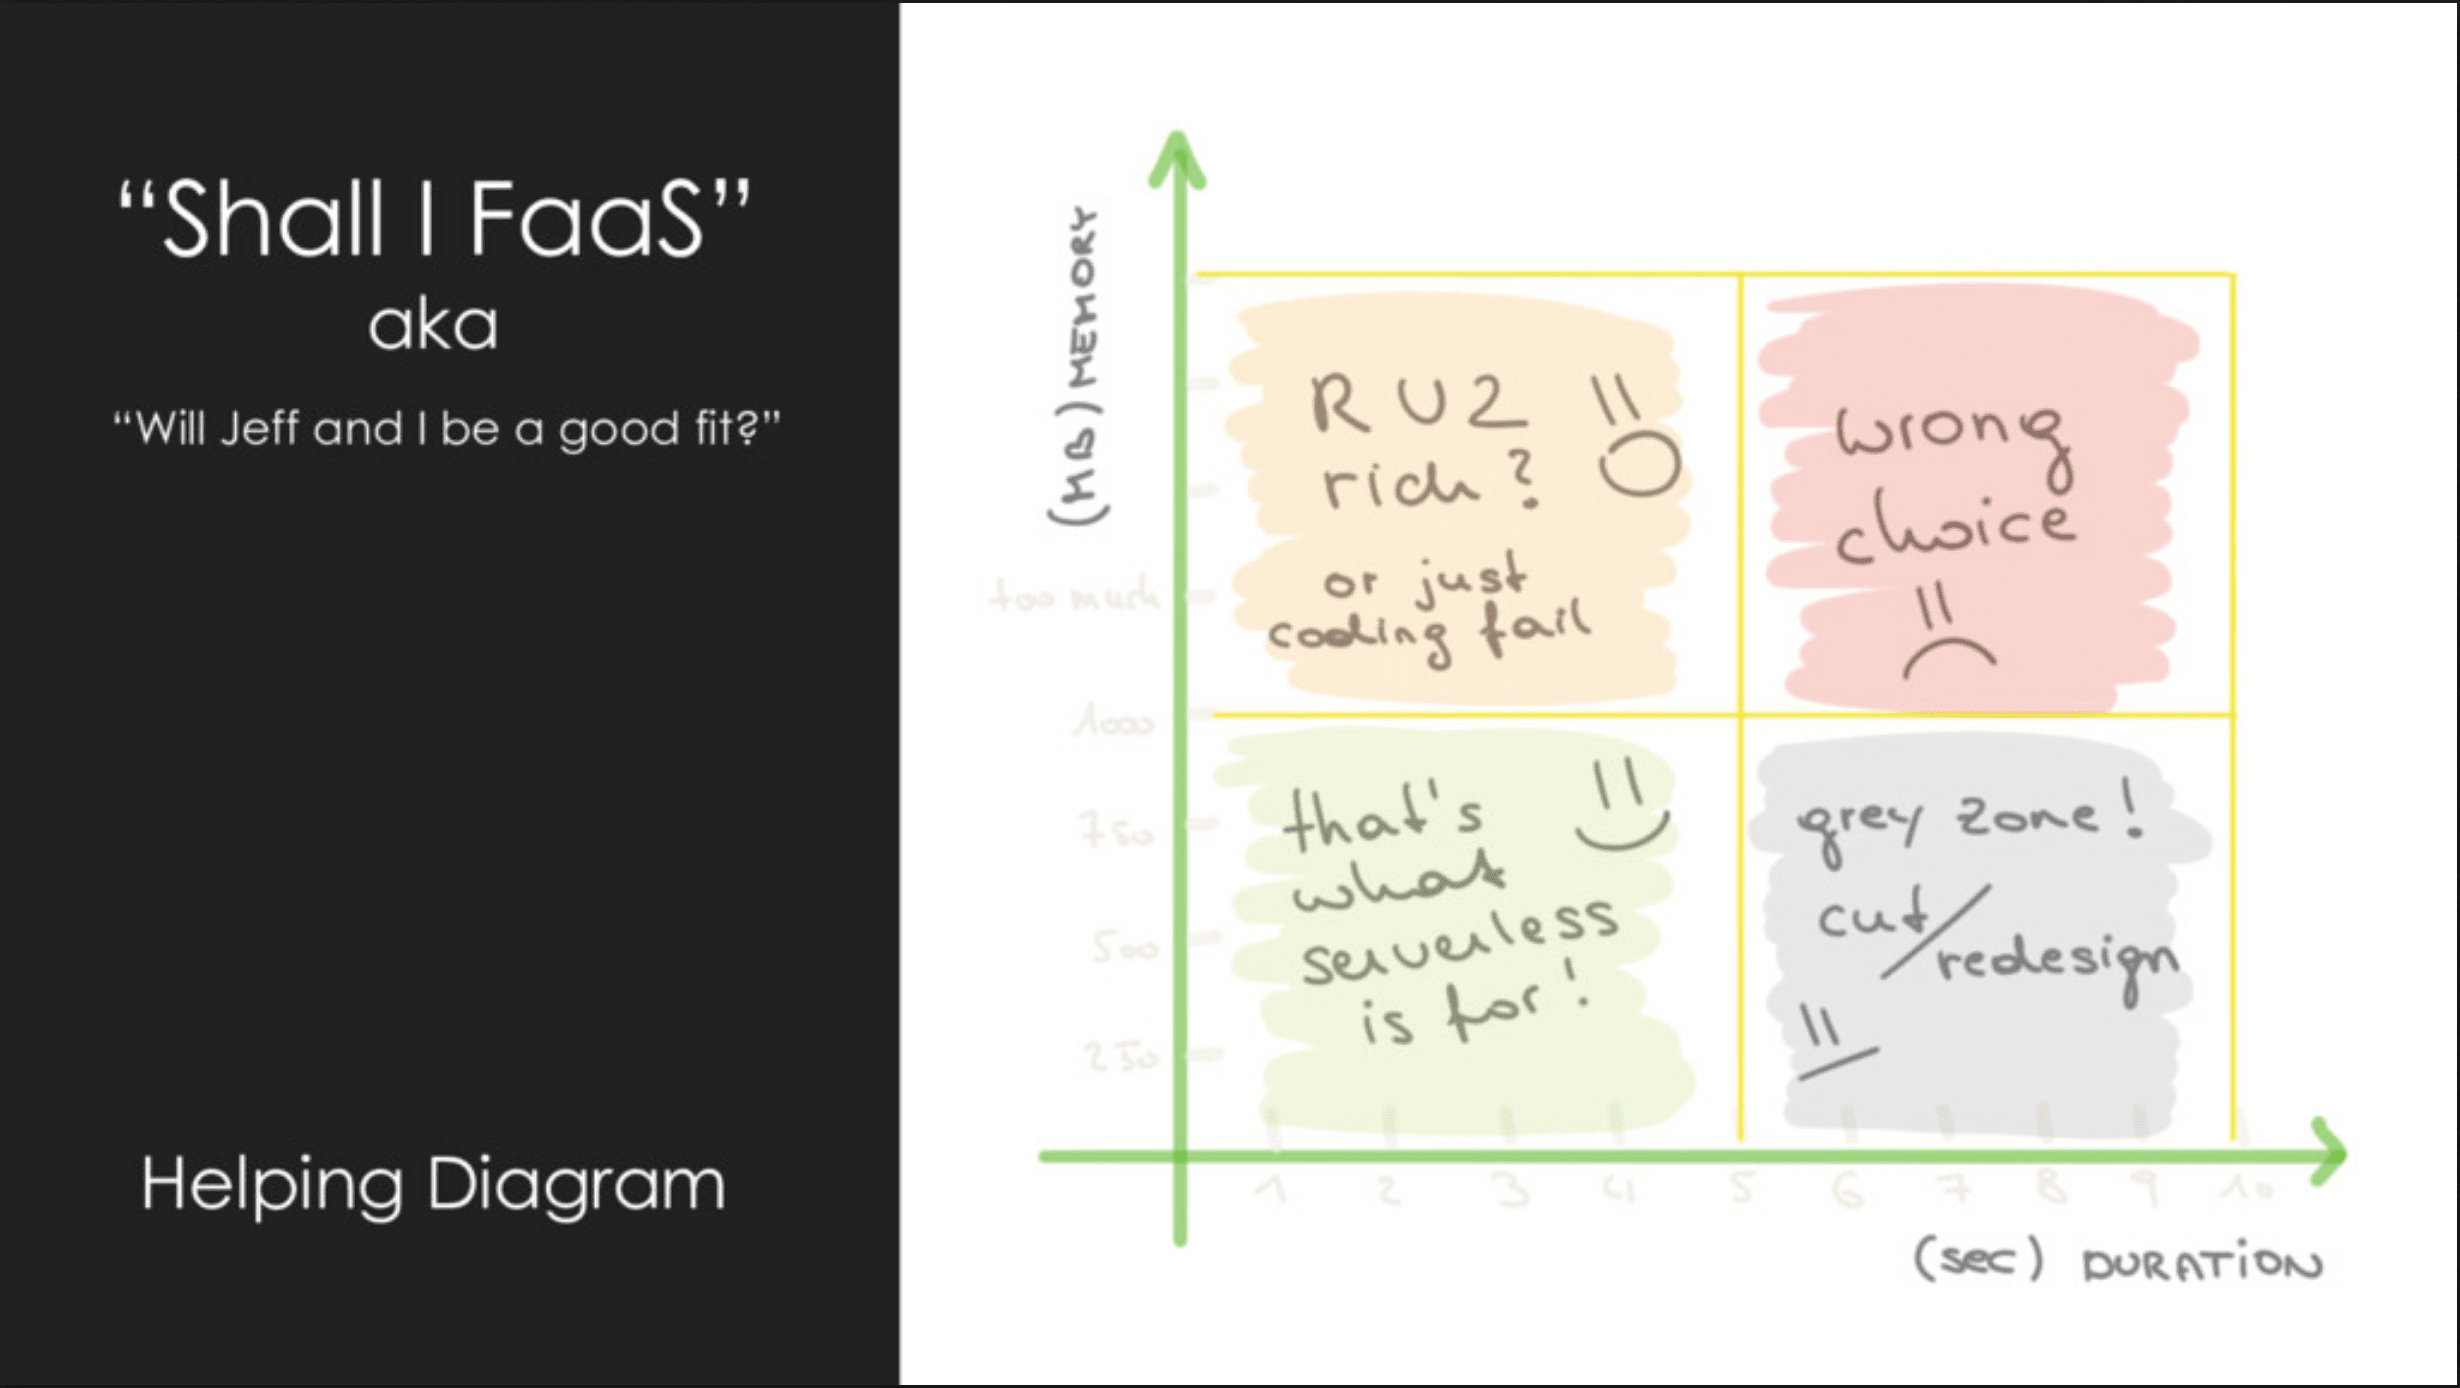 “Shall I FaaS”
aka
“Will Jeff and I be a good fit?”
Helping Diagram
(MB) MEMORY
too much
1000
750
500
250
R U 2
rich?
or just
coding fail
wrong
choice
that's
what
serverless
is for!
grey zone!
cut/
redesign
1 2 3 4 5 6 7 8 9 10
(sec) DURATION